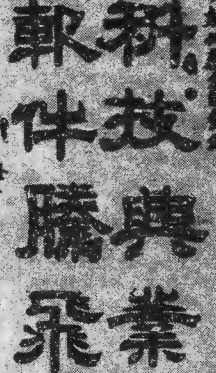 科技興業
軟件騰飛